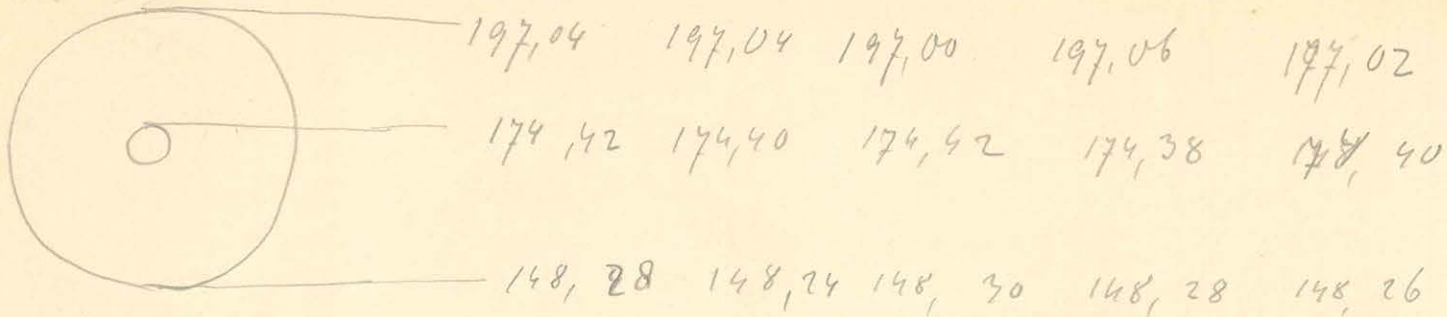 197,04 197,04 197,00 197,06 197,02
174,42 174,40 174,42 174,38 174,40
148,28 148,24 148,30 148,28 148,26